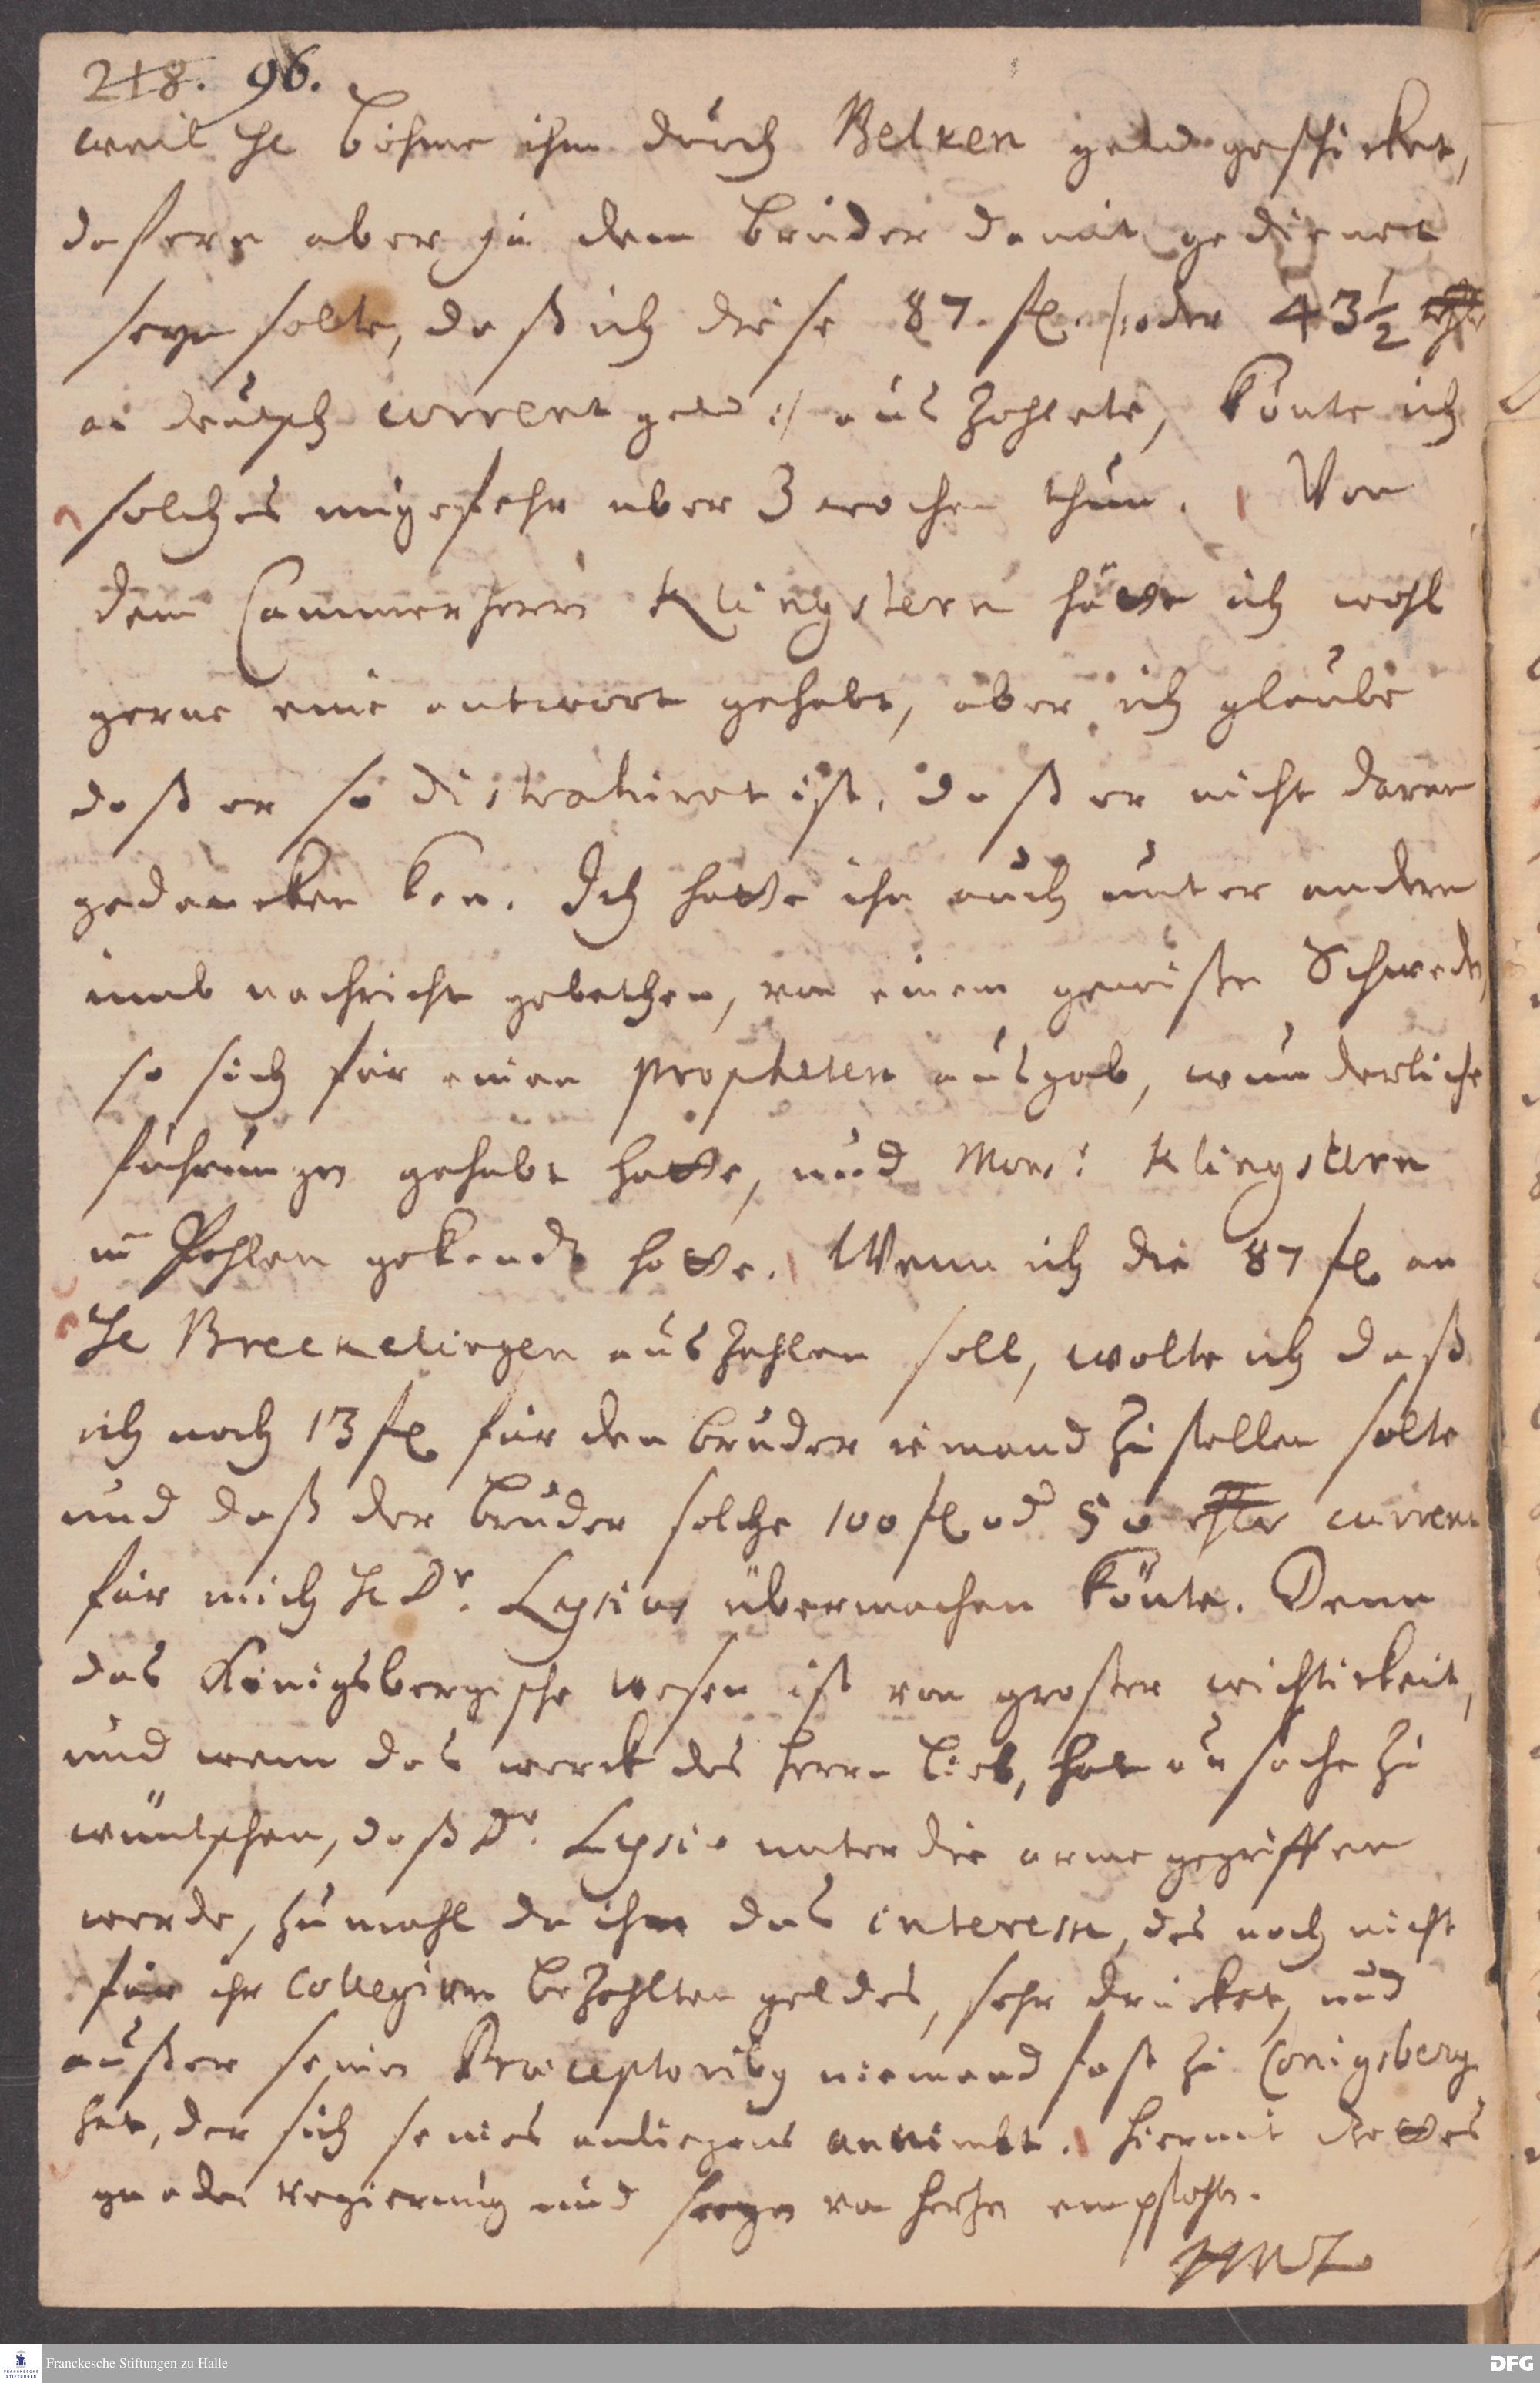 218. 96.
weil He Böhme ihm durch Belken geld geschicket,
dafern aber ja dem Bruder damit gedienet
seyn solte, daß ich diese 87. fl. /: oder 43½ rthlr
an deutsch corrent geld :/ auszahlete, könte ich
solches ungefehr uber 3 wochen thun. Von
dem Cammerherrn Klingstern hätte ich wohl
gerne eine antwort gehabt, aber ich glaube
daß er so distrahirt ist, daß er nicht daran
gedencken kan. Ich hatte ihn auch unter andern
umb nachricht gebethen, von einem gewißen Schweden,
so sich für einen propheten ausgab, wunderliche
führungen gehabt hatte, und Mons: Klingstern
in Pohlen gekandt hatte. Wenn ich die 87 fl an
He Breckelingen auszahlen soll, wolte ich daß
ich noch 13 fl für den bruder iemand zustellen solte
und daß der bruder solche 100 fl od 50 rthlr current
für mich He Dr. Lysius übermachen könte. Denn
das Königsbergische wesen ist von großer wichtikeit,
und wem das werck des Herrn lieb, hat ursache zu
wüntschen, daß Dr. Lysio unter die arme gegriffen
werde, zumahl da ihm das interesse, des noch nicht
für ihr Collegium bezahlten geldes, sehr drücket, und
außer seinen Praeceptoribus niemand fast zu Conigsberg
hat, der sich seines anliegens annimbt. Hiermit Gottes
gnaden regierung und seegen von hertzen empfohln.
HWL
Franckesche Stiftungen zu Halle
FRANCKESCHE STIFTUNGEN
DFG